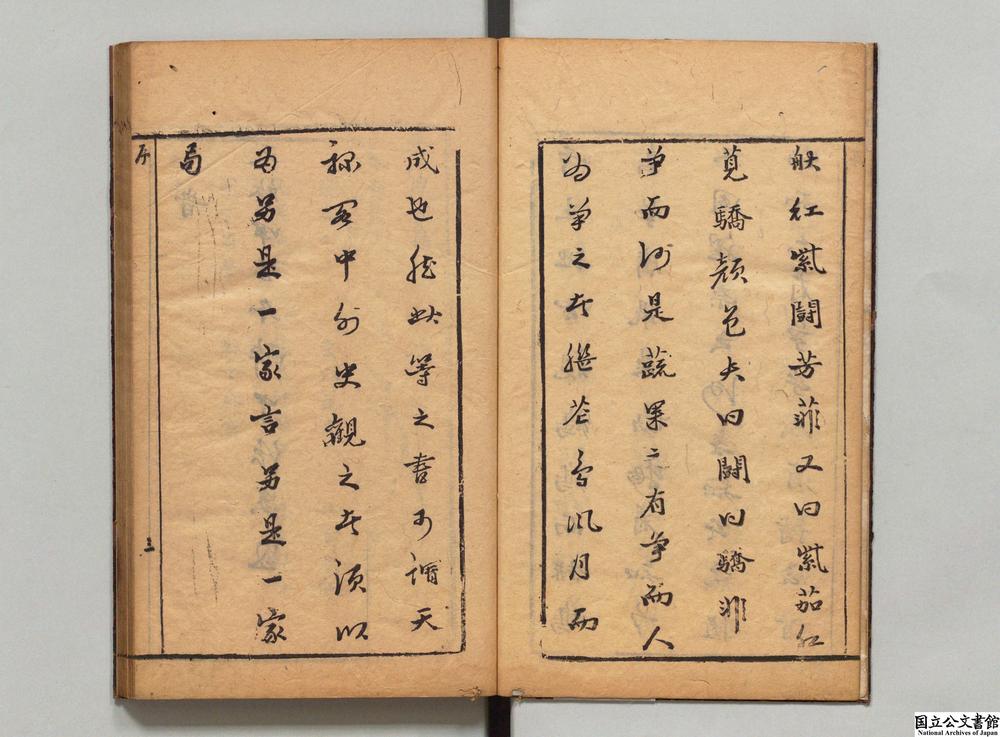 般紅紫闘芳菲又曰紫茄紅
莧驕顔色夫曰闘曰驕非
爭而何是蔬果有爭而人
為爭之者繼花鳥風月而
成也然此等之書可謂天
祿閣中外史觀之者須以
為另是一家言另是一家
局
序
三
国立公文書館
National Archives of Japan